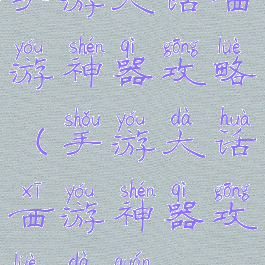 游大话西
yóu shén qì gōng lüè
游神器攻略
shǒu yóu dà huà
(手游大话
xī yóu shén qì gōng
西游神器攻
lüè dà quán